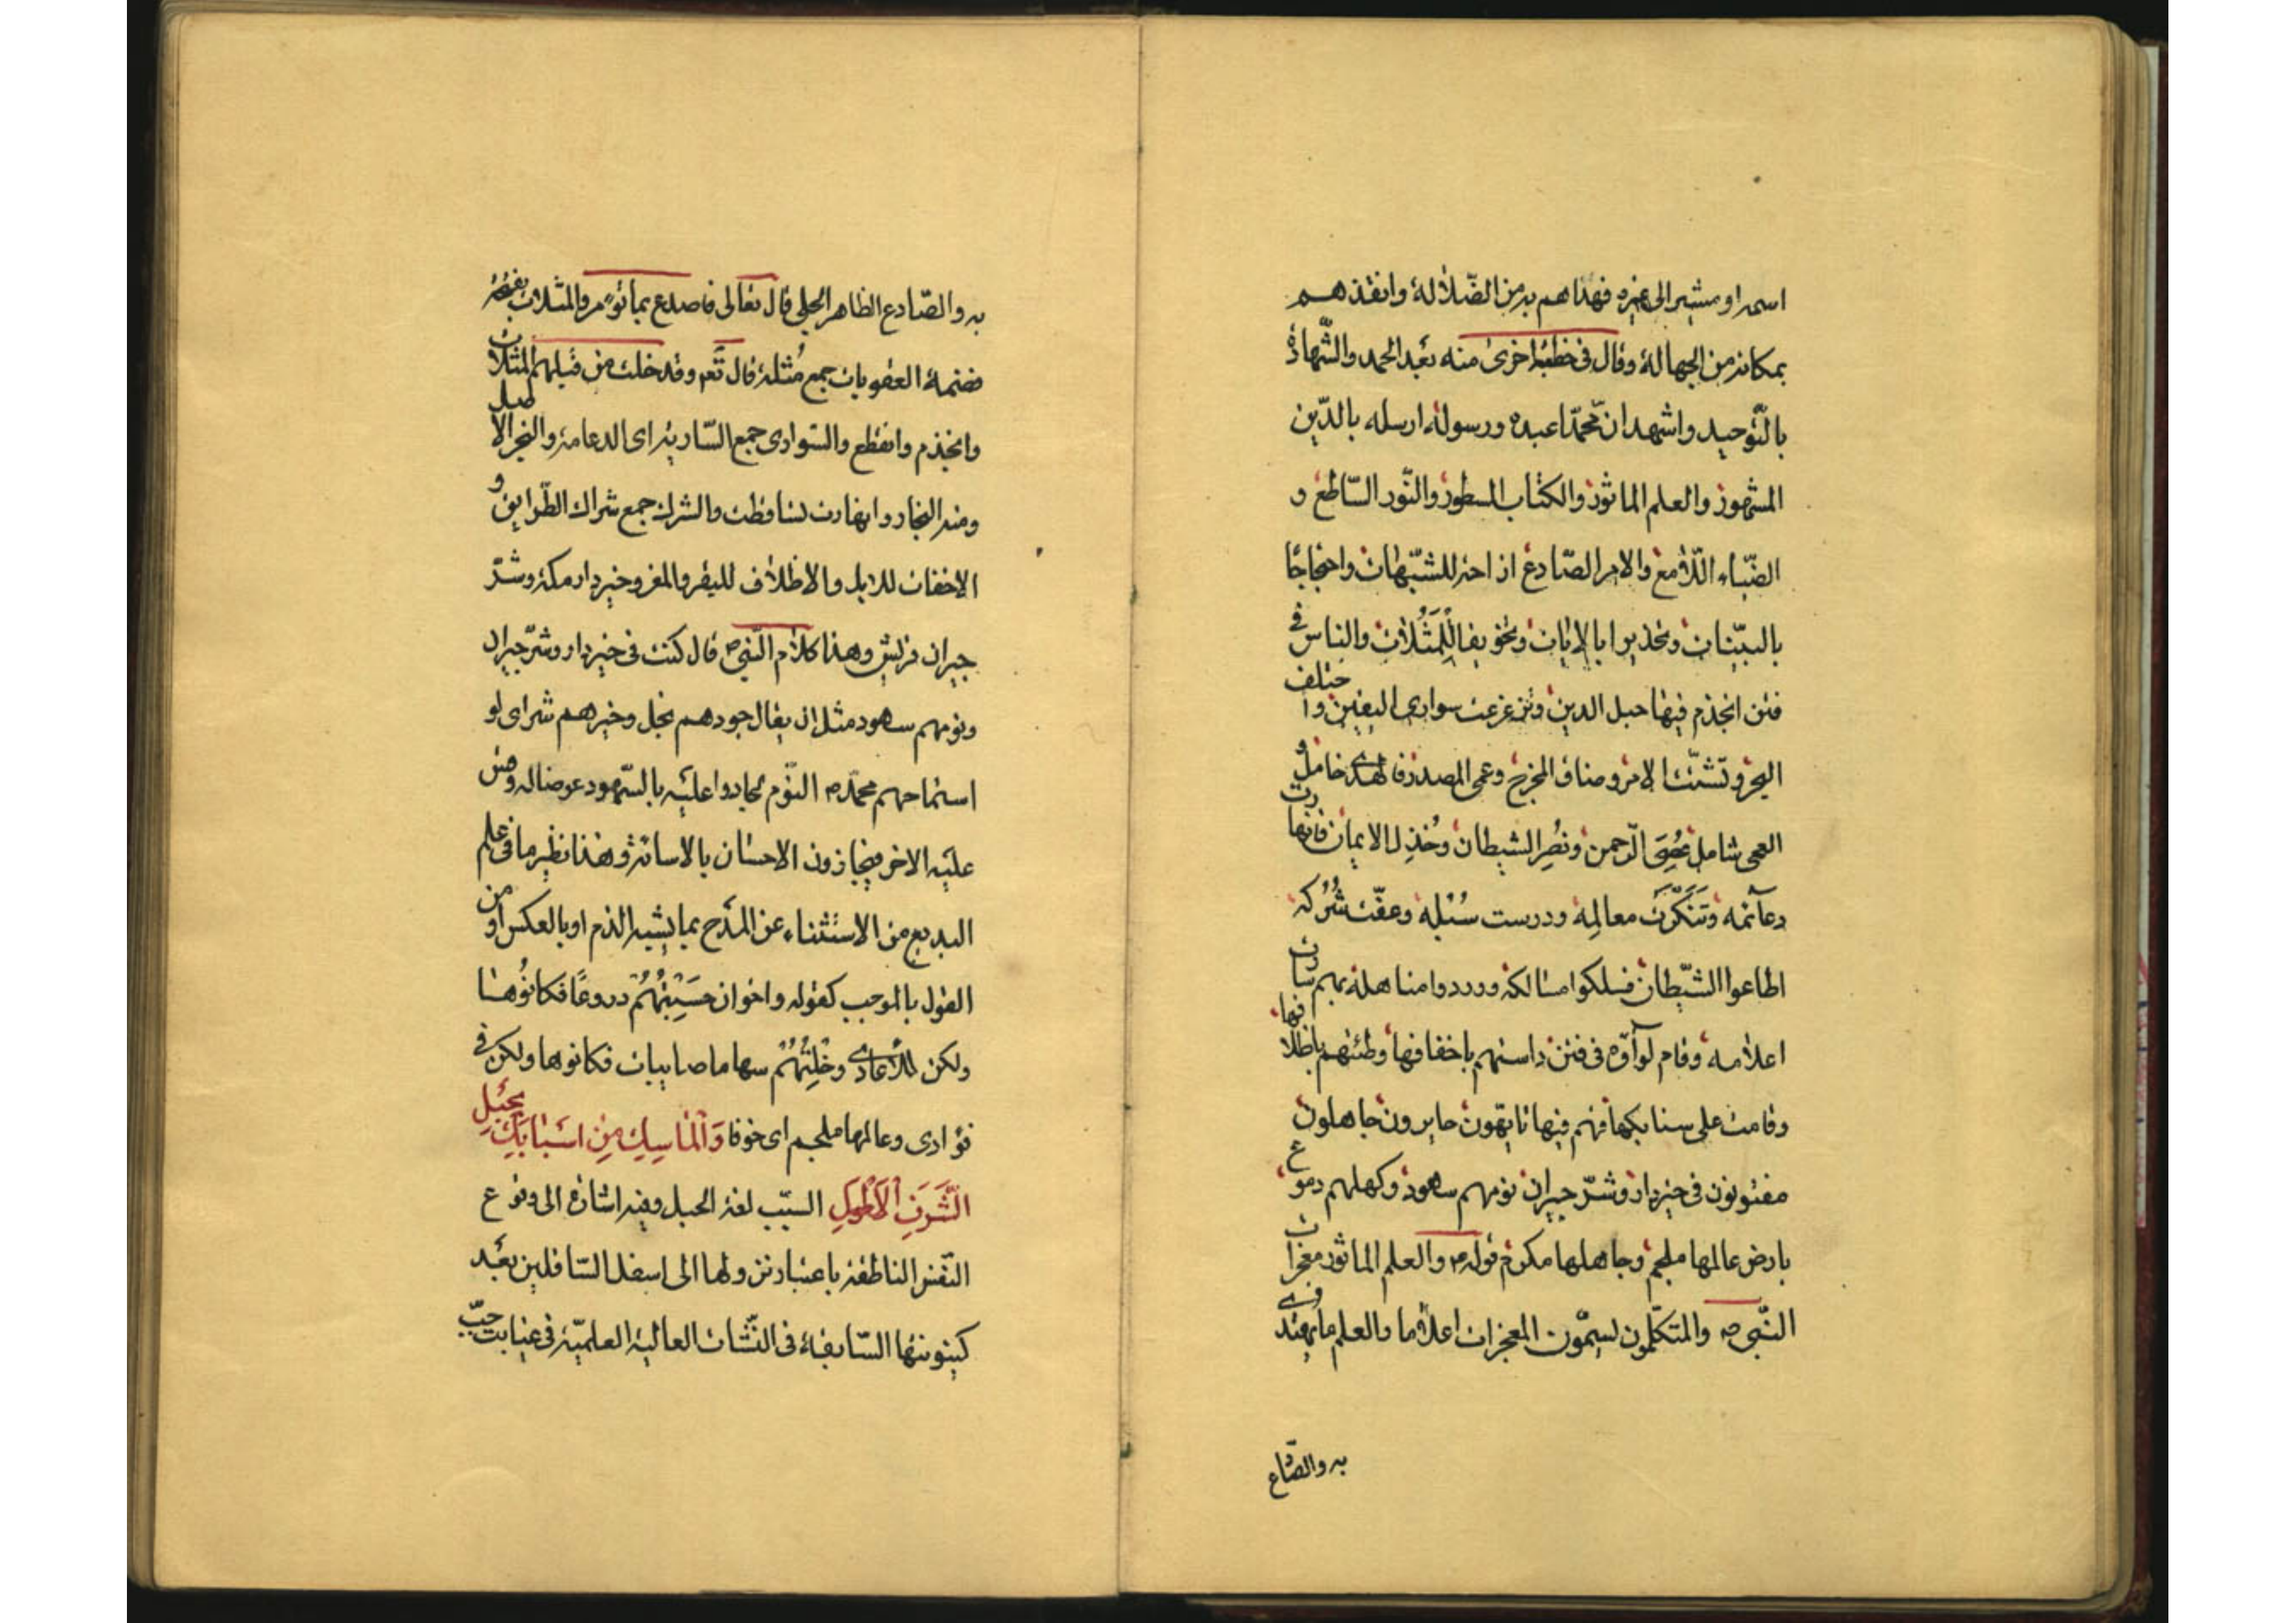 اسمه او مشير الى غيره فهداهم به من الضّلالة وانقذهم
بمكانه من الجهالة وقال فى خطبة اخرى منه بعد الحمد والشّهادة
بالتّوحيد واشهد ان محمّدا عبده ورسوله ارسله بالدّين
المشهور والعلم الماثور والكتاب المسطور والنّور السّاطع و
الضّياء اللّامع والامر الصّادع ازاحة للشّبهات واحتجاجًا
بالبيّنات وتحذيرا بالايات وتخويفا لِلْمَثُلات والناس فى
فتن انجذم فيها حبل الدين وتزعزعت سوارى اليقين واختلف
النجر وتشتّت الامر وضاق المخرج وعمى المصدر فالهدى خامل و
العمى شامل عُصِىَ الرّحمن ونُصِر الشيطان وخُذِل الايمان فانهارت
دعائمه وتَنَكَّرَت معالمه ودرست سُبُله وعفت شُرُكه
اطاعوا الشّيطان فسلكوا مسالكه ووردوا مناهله بهم سارت
اعلامه وقام لواؤه فى فتن داستهم باخفافها وطئتهم باظلافها
وقامت على سنابكها فهم فيها تائهون حايرون جاهلون
مفتونون فى خير دار وشرّ جيران نومهم سهود وكحلهم دموع
بارض عالمها ملجم وجاهلها مكرم قوله والعلم الماثور معجزات
النّبى ص والمتكلّمون يسمّون المعجزات اعلاما والعلم ما يهتدى
به والصّادع
به والصّادع الظاهر الجلى قال تعالى فاصدع بما تؤمر والمثلات بفتحة
فضمة العقوبات جمع مُثلة قال تعم وقد خلت من قبلهم المثلات
وانجذم وانقطع والسّوارى جمع السّارية اى الدعامة والنجر الاصل
ومنه النجار وانهارت تساقطت والشرك جمع شراك الطّرايق و
الاخفاف للابل والاظلاف للبقر والمغز وخير دار مكة وشرّ
جيران قريش وهذا كلام النّبى ص قال كنت فى خير دار وشرّ جيران
ونومهم سهود مثل ان يقال جودهم بخل وخيرهم شر اى لو
استماحهم محمّد ص النّوم لجادوا عليه بالسّهود عوضا له وقس
عليه الاخر فيجازون الاحسان بالاسائة وهذا نظير ما فى علم
البديع من الاستثناء عن المدح بما يشبه الذم او بالعكس او من
القول بالموجب كقوله واخوان حَسِبْتُهُم دروعًا فكانوُها
ولكن للأعادى وخْلِتُهُم سهاما صايبات فكانوها ولكن فى
فؤادى وعالمها ملجم اى خوفا وَالْمَاسِكِ مِنْ اَسْبَابِكَ بِحَبْلِ
الْشَّرَفِ الْأَطْوَلِ السّبب لغة الحبل وفيه اشارة الى وقوع
النّفس الناطقة باعتبار تنزولها الى اسفل السّافلين بعد
كينونتها السّابقة فى النّشات العالية العلميّة فى غيابت جبّ